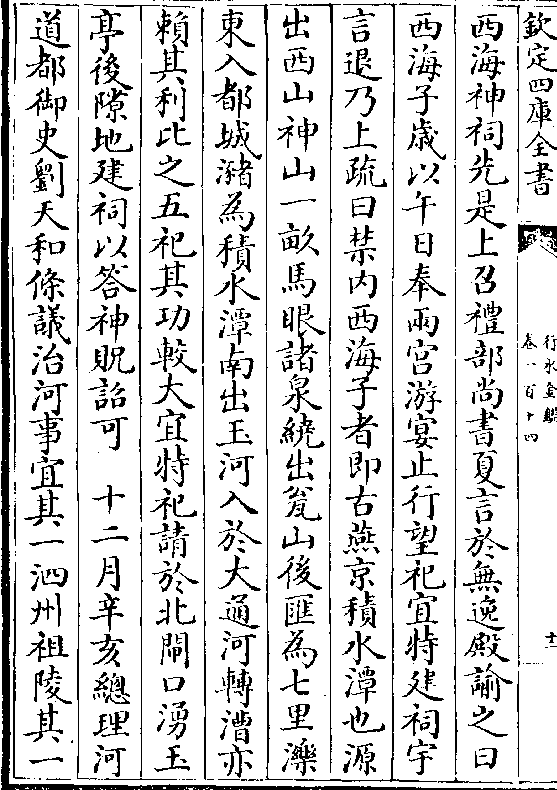 欽定四庫全書
行水金鑑
卷一百十四
十二
西海神祠先是上召禮部尚書夏言於無逸殿諭之曰
西海子歲以午日奉兩宮游宴止行望祀宜特建祠宇
言退乃上疏曰禁內西海子者即古燕京積水潭也源
出西山神山一畝馬眼諸泉繞出瓮山後匯為七里濼
東入都城瀦為積水潭南出玉河入於大通河轉漕亦
賴其利比之五祀其功較大宜特祀請於北閘口湧玉
亭後隙地建祠以答神貺詔可　十二月辛亥總理河
道都御史劉天和條議治河事宜其一泗州祖陵其一